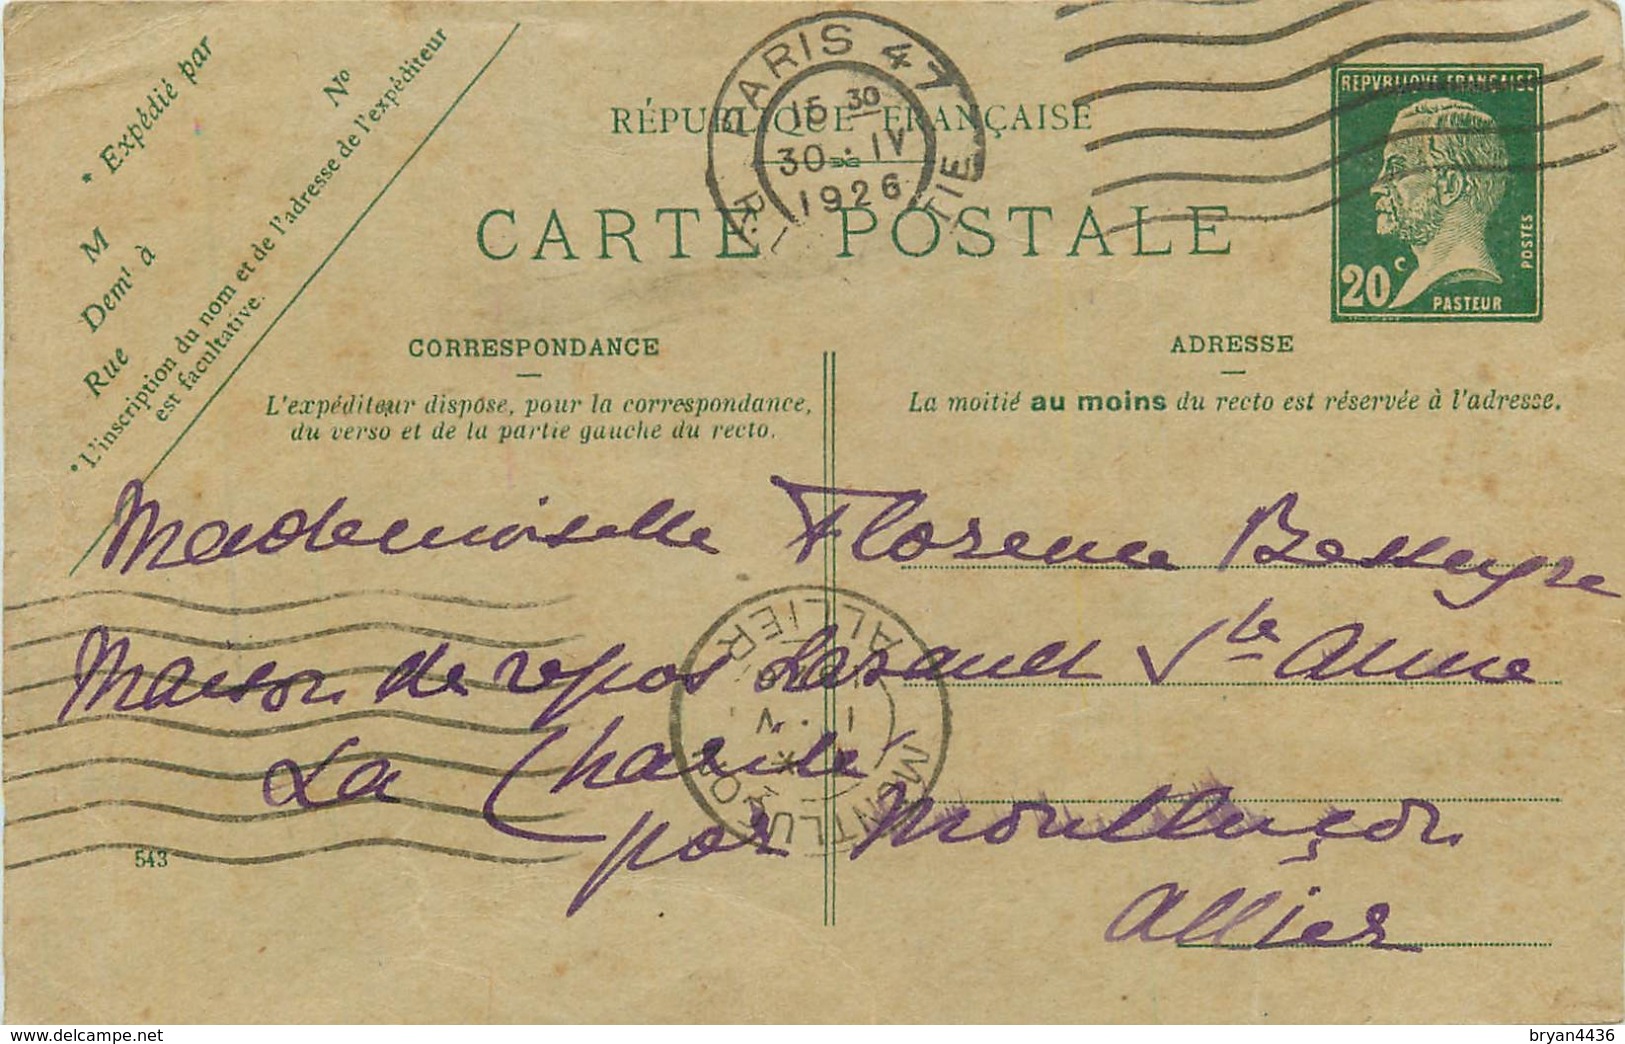 * Expédié par
M
Demt à
Rue
No
* L'inscription du nom et de l'adresse de l'expéditeur
est facultative.
PARIS 47
15 30
30 · IV
1926
R. TIE
RÉPUBLIQUE FRANÇAISE
CARTE POSTALE
REPVBLIQVE FRANÇAISE
20 c
POSTES
PASTEUR
CORRESPONDANCE
L'expéditeur dispose, pour la correspondance,
du verso et de la partie gauche du recto.
ADRESSE
La moitié au moins du recto est réservée à l'adresse.
Mademoiselle Florence Besseyre
Maison de repos Ste Anne
La Charité
par Montluçon
Allier
ALLIER
MONTLUÇON
543
delcampe.net
bryan4436